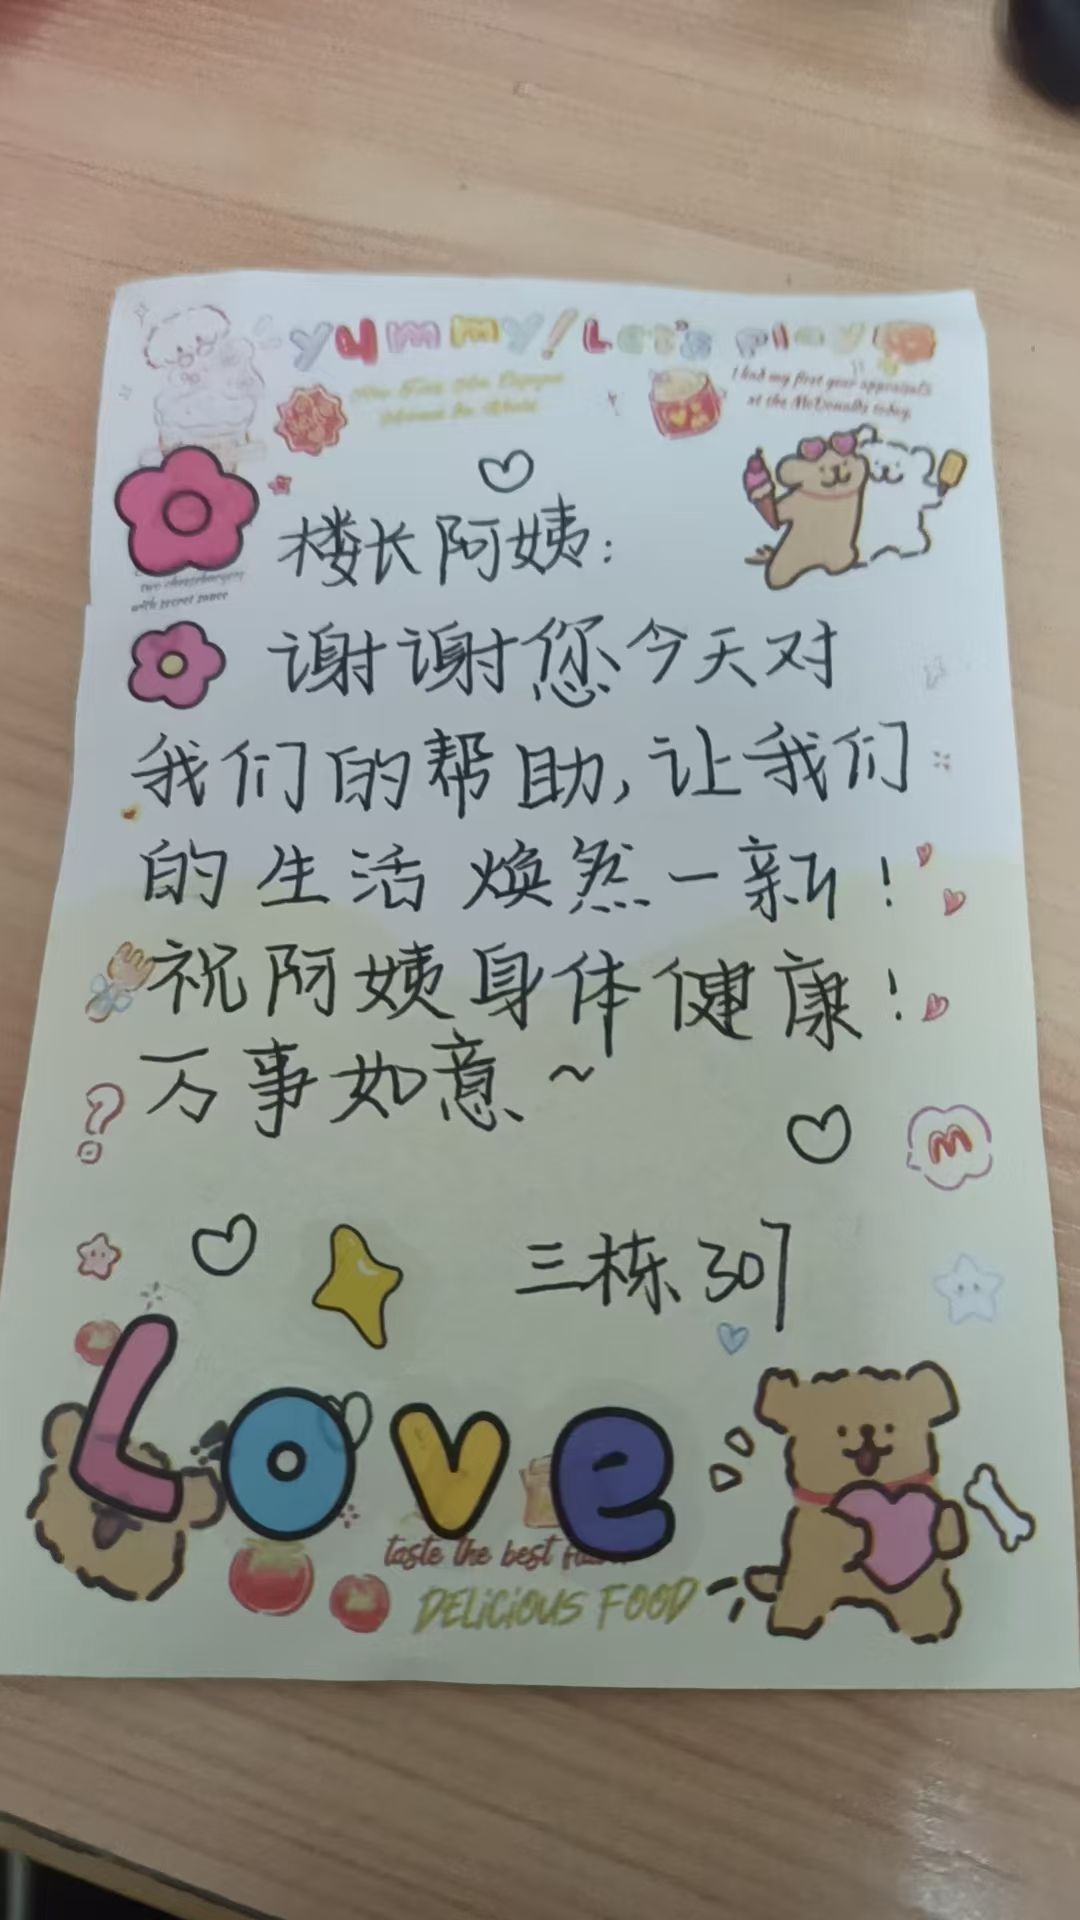 yummy! Let's play
I had my first year appraisals
at the McDonalds today.
two cheeseburgers
with secret sauce
楼长阿姨:
谢谢您今天对
我们的帮助,让我们
的生活焕然一新!
祝阿姨身体健康!
万事如意~
M
三栋307
Love
taste the best
DELiCiOUS FOOD